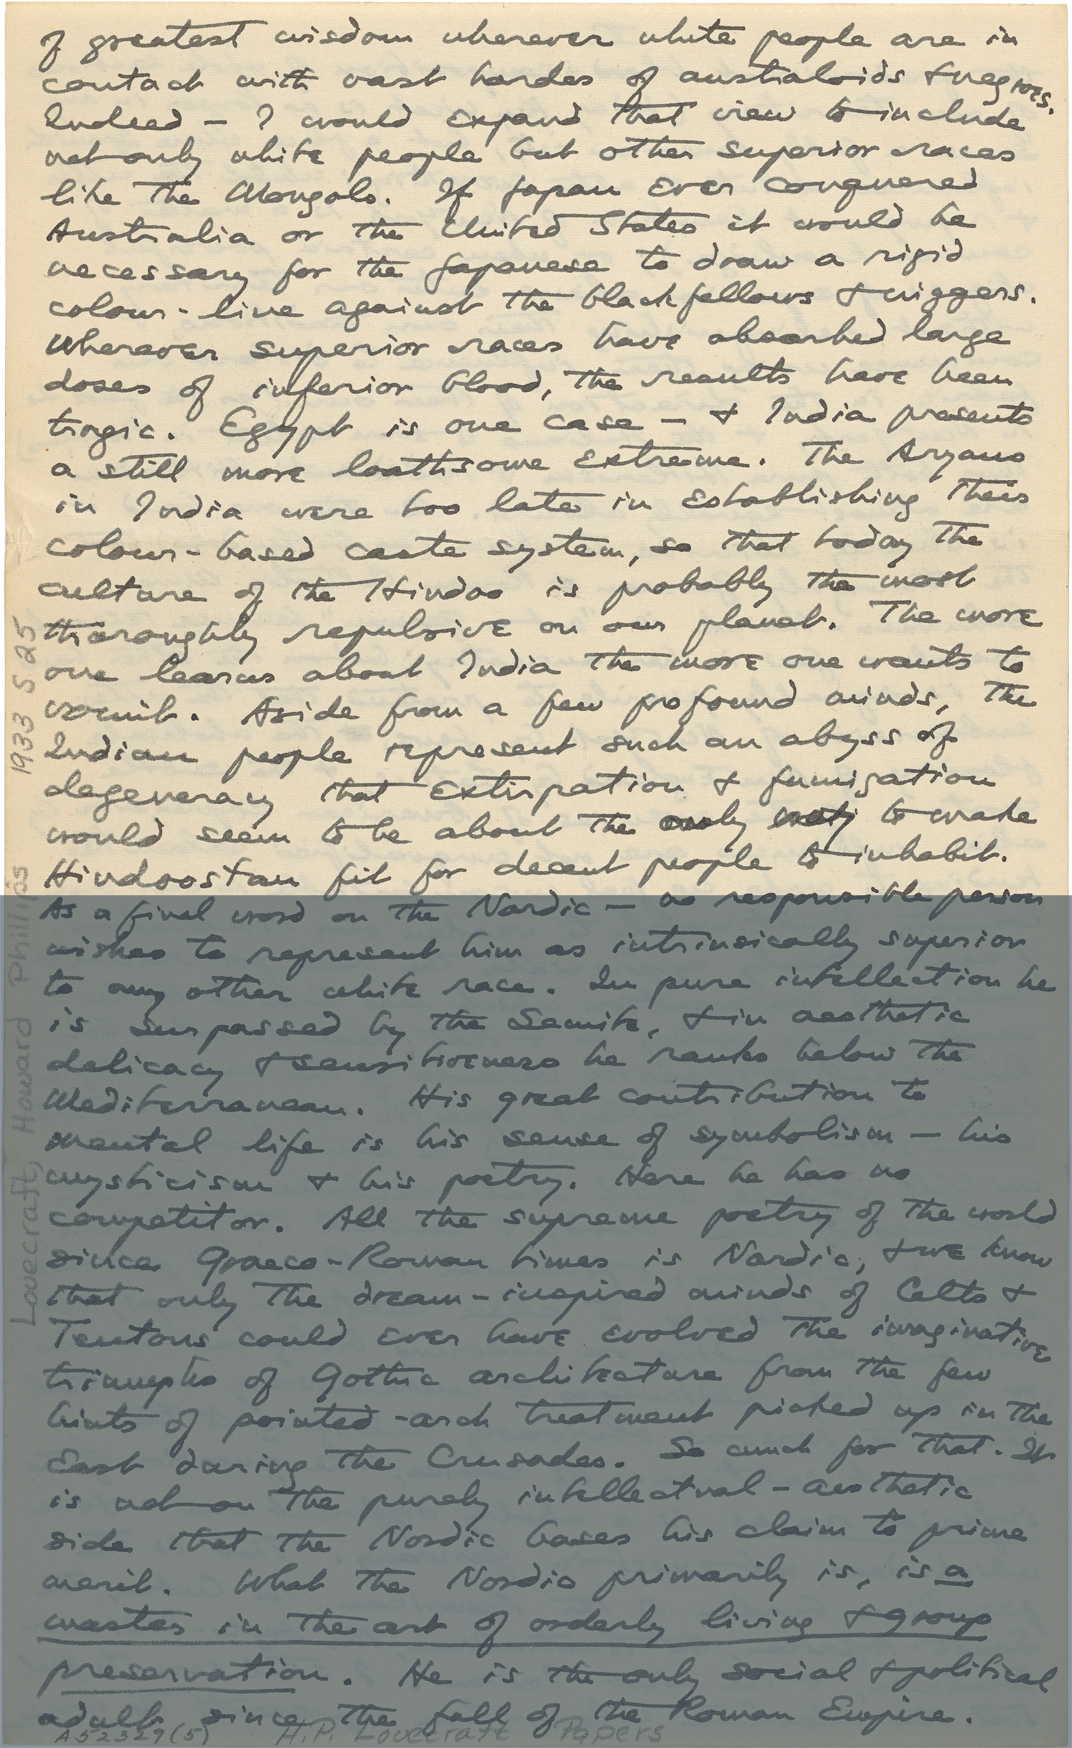 of greatest wisdom wherever white people are in
contact with vast hordes of australoids & negroes.
Indeed — I would expand that view to include
not only white people but other superior races
like the Mongols. If Japan ever conquered
Australia or the United States it would be
necessary for the Japanese to draw a rigid
colour-line against the blackfellows & niggers.
Wherever superior races have absorbed large
doses of inferior blood, the results have been
tragic. Egypt is one case — & India presents
a still more loathsome extreme. The Aryans
in India were too late in establishing their
colour-based caste system, so that today the
culture of the Hindoo is probably the most
thoroughly repulsive on our planet. The more
one learns about India the more one wants to
vomit. Aside from a few profound minds, the
Indian people represent such an abyss of
degeneracy that extirpation & fumigation
would seem to be about the only way to make
Hindoostan fit for decent people to inhabit.
As a final word on the Nordic — no responsible person
wishes to represent him as intrinsically superior
to any other white race. In pure intellection he
is surpassed by the Semite, & in aesthetic
delicacy & sensitiveness he ranks below the
Mediterranean. His great contribution to
mental life is his sense of symbolism — his
mysticism & his poetry. Here he has no
competitor. All the supreme poetry of the world
since Graeco-Roman times is Nordic, & we know
that only the dream-inspired minds of Celts &
Teutons could ever have evolved the imaginative
triumphs of Gothic architecture from the few
hints of pointed-arch treatment picked up in the
East during the Crusades. So much for that. It
is not on the purely intellectual-aesthetic
side that the Nordic bases his claim to prime
merit. What the Nordic primarily is, is a
master in the art of orderly living & group
preservation. He is the only social & political
adult since the fall of the Roman Empire.
A52327(5) H.P. Lovecraft Papers
Lovecraft, Howard Phillips 1933 S 25